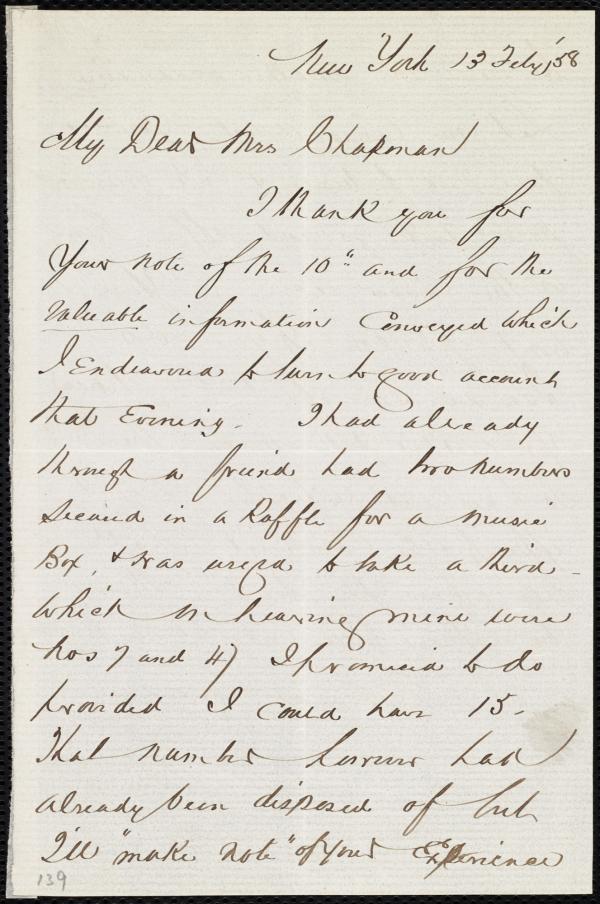 New York 13 Feby '58
My Dear Mrs Chapman
I thank you for
Your note of the 10" and for the
valuable information Conveyed which
I Endeavored to turn to good account
that Evening. I had already
through a friend had two numbers
secured in a Raffle for a music
Box, & was urged to take a third -
which on hearing mine were
Nos 7 and 47 I promised to do
provided I could have 15 -
That number however had
already been disposed of but
I'll "make note" of your Experience
139